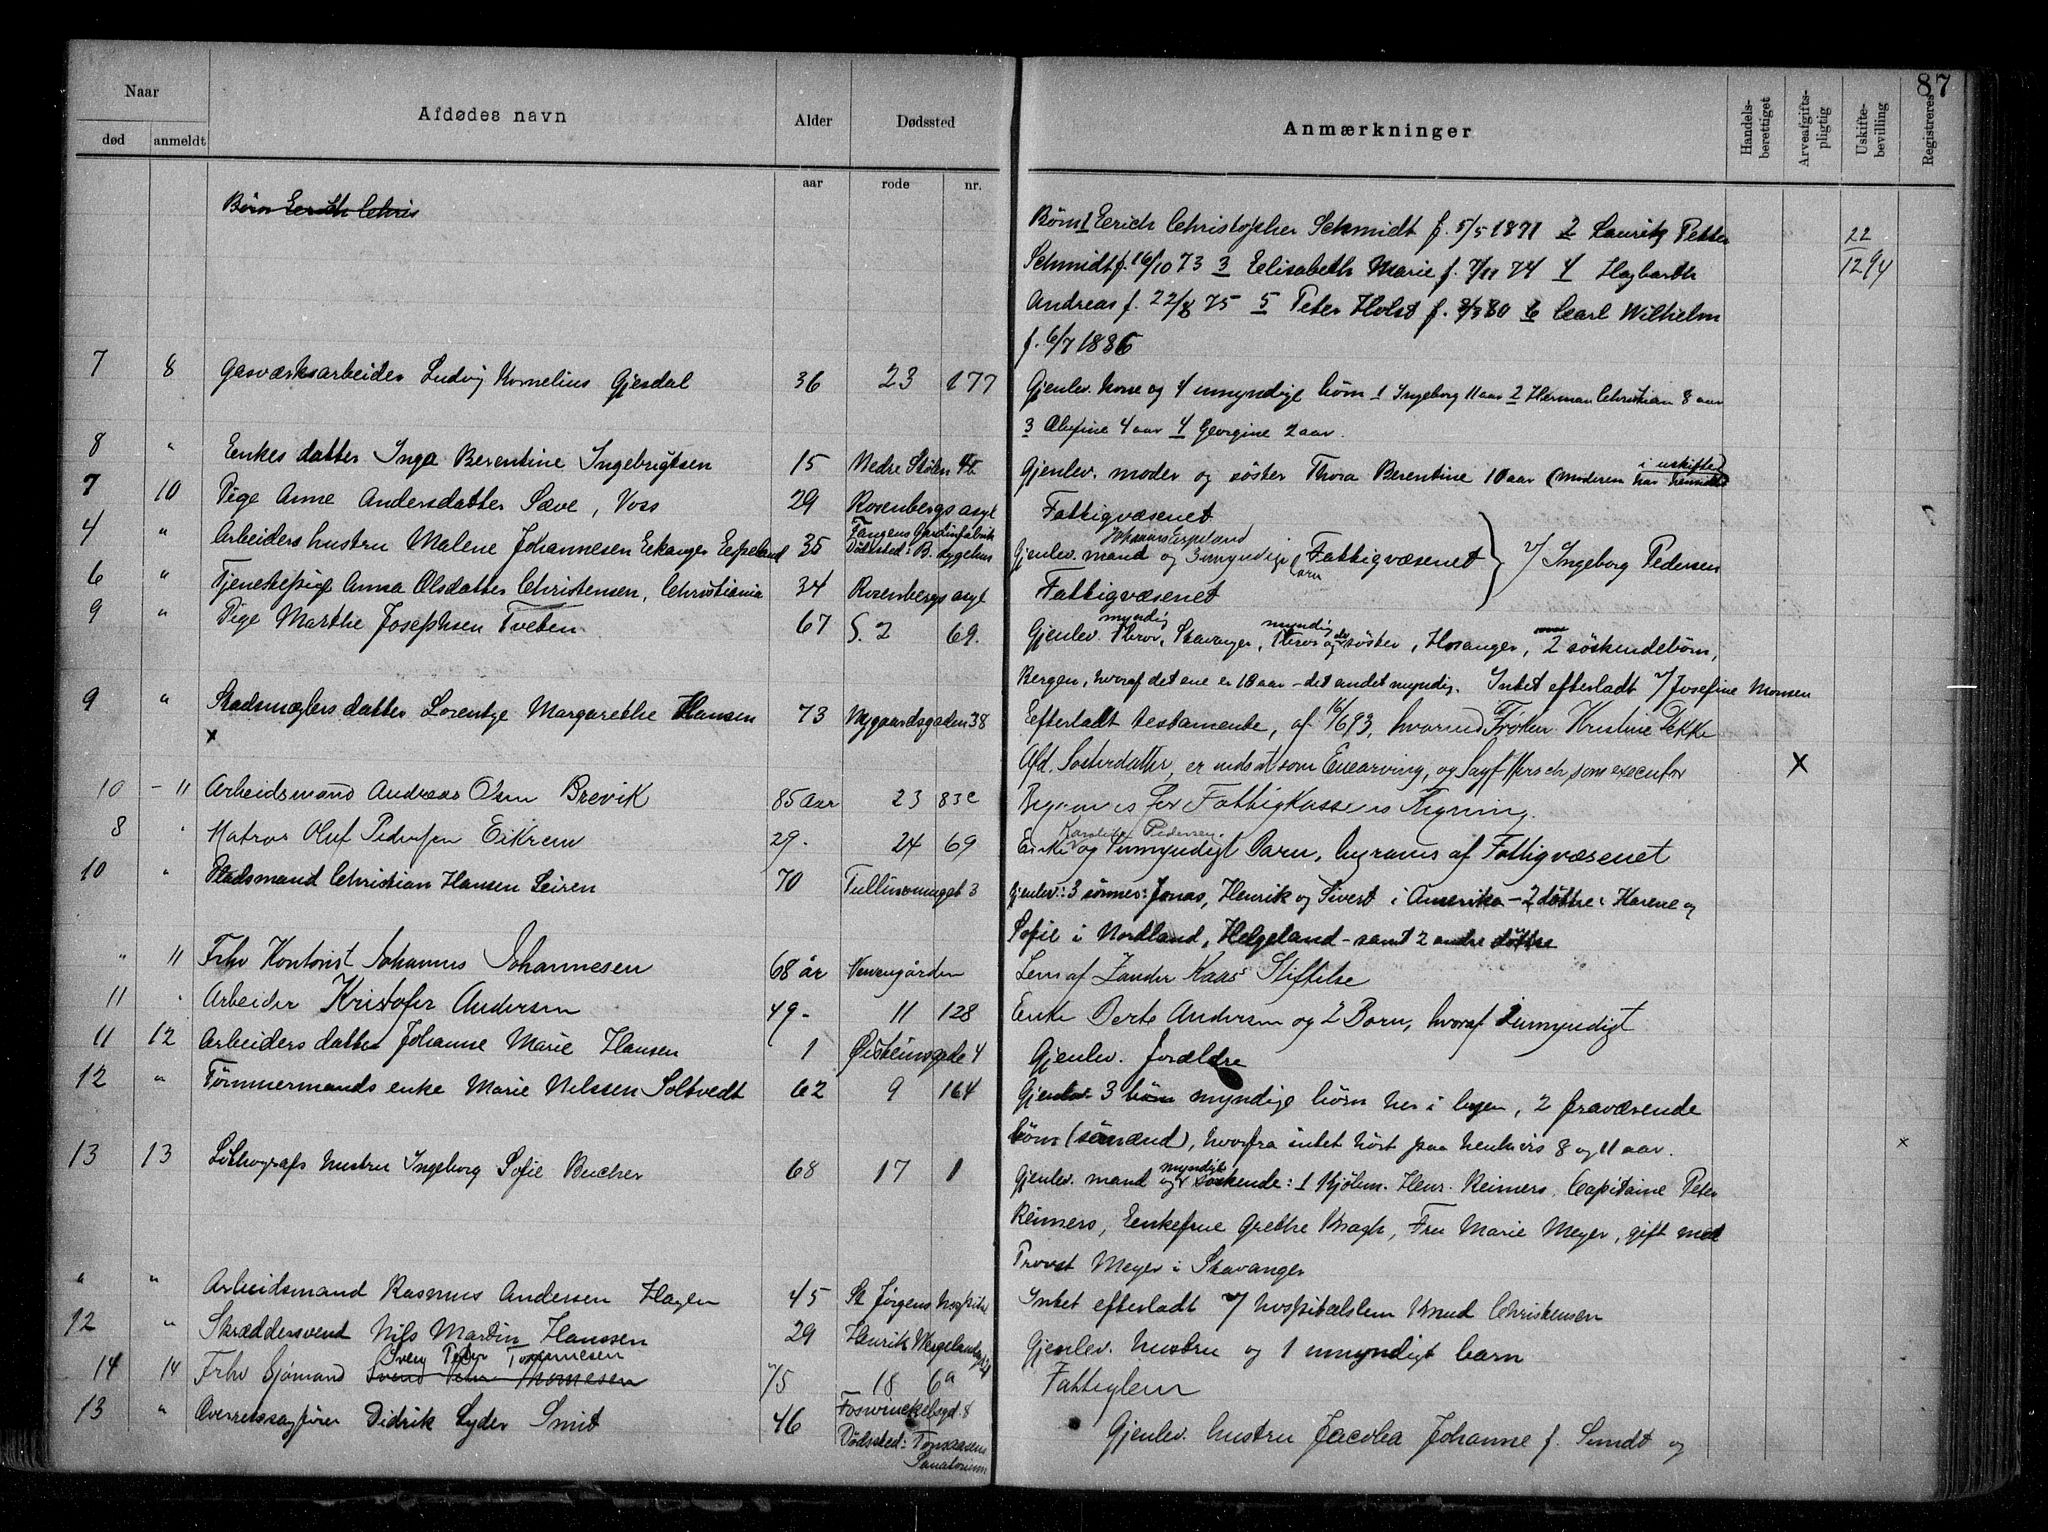 87
Naar
Afdødes navn
Alder
Dødssted
Anmærkninger
Handels-berettiget
Arveafgifts-pligtig
Uskifte-bevilling
Registreres
død anmeldt
aar rode nr.
Børn Erich Chris
Børn 1 Erich Christopher Schmidt f. 5/5 1871 2 Lauritz Petter
Schmidt f. 16/10 73 3 Elisabeth Marie f. 7/11 74 4 Hagbarth
Andreas f. 22/8 75 5 Peter Holst f. 80 6 Carl Wilhelm
f. 6/7 1886
22
12 94
7 8 Gasværksarbeider Ludvig Kornelius Gjesdal 36 23 177 Gjenlev. kone og 4 umyndige børn 1 Ingeborg 11 aar 2 Herman Christian 8 aar
3 4 aar 4 Georgine 2 aar.
8 " Enkes datter Inga Berentine Ingebrigtsen 15 Nedre Stølen Gjenlev. moder og søster Thora Berentine 10 aar (moderen har hensiddet i uskiftet
7 10 Pige Anne Andersdatter Sæve, Voss 29 Rosenbergs asyl Fattigvæsenet
4 " Arbeiders hustru Malene Johannesen Eikanger Espeland 35 Dødssted: B. sygehus Gjenlev. mand Johannes Espeland og 3 umyndige børn Fattigvæsenet
v/ Ingeborg Pedersen
6 " Tjenestepige Anna Olsdatter Christensen, Christiania 34 Rosenbergs asyl Fattigvæsenet
9 " Pige Marthe Josephsen Tveten 67 S. 2 69. Gjenlev. myndig Stavanger, myndig søster, Hosanger, 2 søskendebørn,
Bergen, hvoraf det ene er 18 aar - det andet myndig. Intet efterladt v/ Josefine Monsen
9 " Stadsmæglers datter Lorentze Margarethe Hansen 73 Nygaardsgaden 38 Efterladt testamente, af 16/6 93, hvorved Frøken Kristine Dekke
x
Afd. Søsterdatter, er indsat som Enearving, og Sagf. som executor
X
10 - 11 Arbeidsmand Andreas Olsen Brevik 85 Aar 23 83c Begraves for Fattigkassens Regning.
8 " Matros Oluf Pedersen Eikrem 29. 24 69 Enke Pedersen og 1 umyndigt Barn, begraves af Fattigvæsenet
10 " Pladsmand Christian Hansen Leiren 70 Tullins 3 Gjenlev: 3 sønner: Jonas, Henrik og Sivert i Amerika - 2 døttre: Karene og
Sofie i Nordland, Helgeland - samt 2 andre døttre
" 11 Frhv Kontorist Johannes Johannesen 68 år Lem af Zander Kaas's Stiftelse
11 " Arbeider Kristofer Andersen 49- 11 128 Enke Berte Andersen og 2 Børn, hvoraf 1 umyndigt
11 12 Arbeiders datter Johanne Marie Hansen 1 Øisteinsgade 4 Gjenlev. forældre
12 " Tømmermands enke Marie Nilssen Soltvedt 62 9 164 Gjenlev 3 børn myndige børn her i byen, 2 fraværende
børn (sømænd), hvorfra intet hørt paa henhvis 8 og 11 aar.
x
13 13 Lithografs hustru Ingeborg Sofie Bucher 68 17 1 Gjenlev. mand og 4 myndige søskende: 1 Kjøbm. Henr. Reimers. Capitaine Peter
Reimers, Enkefrue Grethe Krogh, Fru Marie Meyer, gift med
Provst Meyer i Stavanger
" " Arbeidsmand Rasmus Andersen Hagen 45 St Jørgens hospital Intet efterladt v/ hospitalslem Knud Christensen
12 " Skræddersvend Nils Martin Hanssen 29 Henrik Wergelandsgd Gjenlev. hustru og 1 umyndigt barn
14 14 Frhv Sjømand Svend Peter Thomesen 75 18 6a Fattiglem
13 " Overretssagfører Didrik Lyder Smit 46 Foswinckelsgd. 8
Dødssted: Tonsaasens Sanatorium
Gjenlev. hustru Jacobea Johanne f. Sundt og